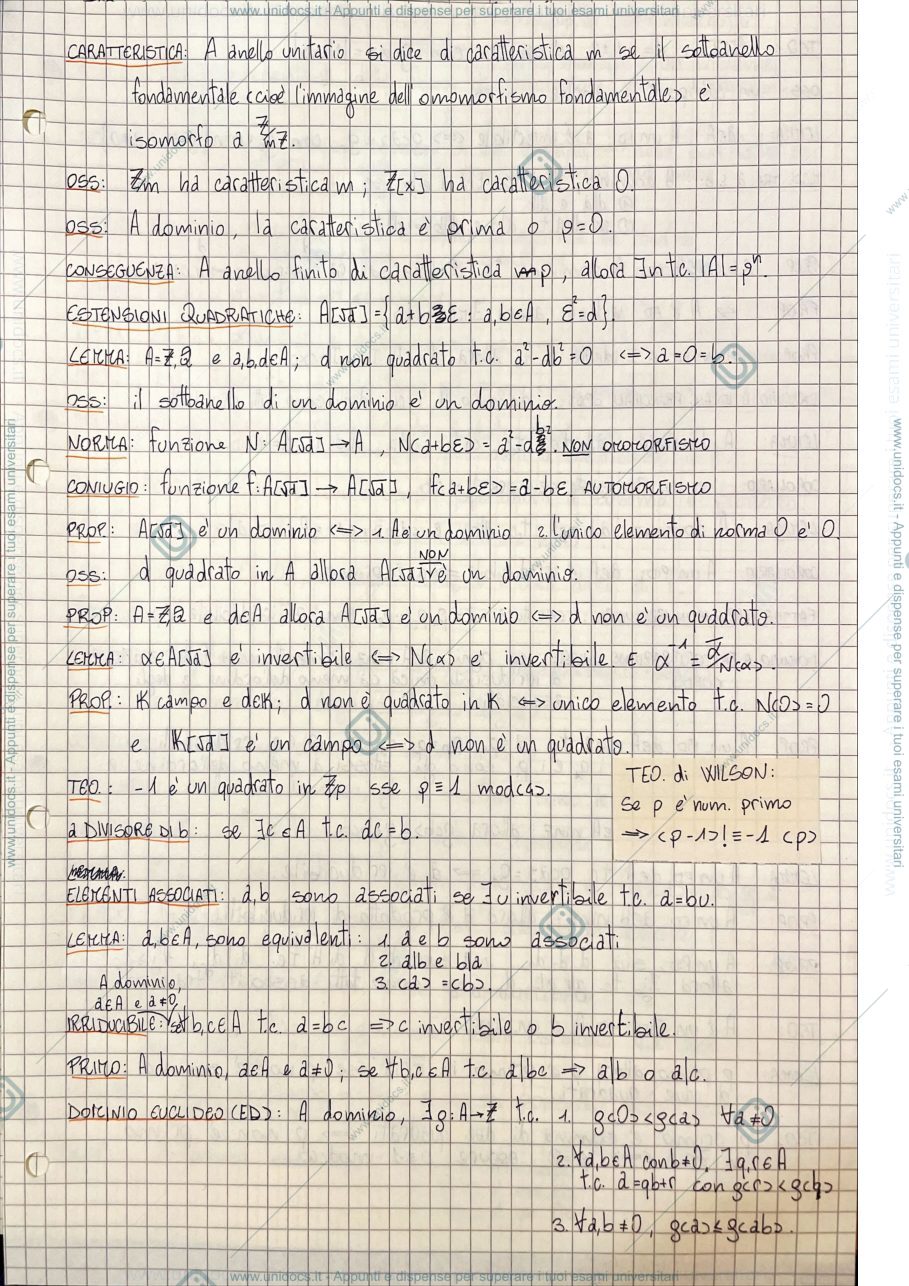 www.unidocs.it - Appunti e dispense per superare i tuoi esami universitari
CARATTERISTICA: A anello unitario si dice di caratteristica m se il sottoanello
fondamentale (cioè l'immagine dell'omomorfismo fondamentale) è
isomorfo a Z/mZ.
OSS: Zm ha caratteristica m; Z[x] ha caratteristica 0.
OSS: A dominio, la caratteristica è prima o p=0.
CONSEGUENZA: A anello finito di caratteristica p, allora ∃n t.c. |A|=pⁿ.
ESTENSIONI QUADRATICHE: A[√d]={a+bε : a,b∈A, ε²=d}.
LEMMA: A=Z,Q e a,b,d∈A; d non quadrato t.c. a²-db²=0 <=> a=0=b.
OSS: il sottoanello di un dominio è un dominio.
NORMA: funzione N: A[√d]→A, N(a+bε) = a²-db². NON OMOMORFISMO
CONIUGIO: funzione f:A[√d] → A[√d], f(a+bε)=a-bε. AUTOMORFISMO
PROP.: A[√d] è un dominio <=> 1. A è un dominio 2. l'unico elemento di norma 0 è 0.
OSS: d quadrato in A allora A[√d] NON è un dominio.
PROP: A=Z,Q e d∈A allora A[√d] è un dominio <=> d non è un quadrato.
LEMMA: α∈A[√d] è invertibile <=> N(α) è invertibile. E α⁻¹ = ᾱ/N(α).
PROP.: K campo e d∈K; d non è quadrato in K <=> unico elemento t.c. N(0)=0
e K[√d] è un campo <=> d non è un quadrato.
TEO.: -1 è un quadrato in Zp sse p≡1 mod(4).
TEO. di WILSON:
Se p è num. primo
=> (p-1)! ≡ -1 (p)
a DIVISORE DI b: se ∃c∈A t.c. ac=b.
ELEMENTI ASSOCIATI: a,b sono associati se ∃u invertibile t.c. a=bu.
LEMMA: a,b∈A, sono equivalenti: 1. a e b sono associati
2. a|b e b|a
3. (a)=(b).
A dominio,
a∈A e a≠0,
IRRIDUCIBILE: se ∀b,c∈A t.c. a=bc => c invertibile o b invertibile.
PRIMO: A dominio, a∈A e a≠0; se ∀b,c∈A t.c. a|bc => a|b o a|c.
DOMINIO EUCLIDEO (ED): A dominio, ∃g:A→Z t.c. 1. g(0)<g(a) ∀a≠0
2. ∀a,b∈A con b≠0, ∃q,r∈A
t.c. a=qb+r con g(r)<g(b)
3. ∀a,b≠0, g(a)≤g(ab).
www.unidocs.it - Appunti e dispense per superare i tuoi esami universitari